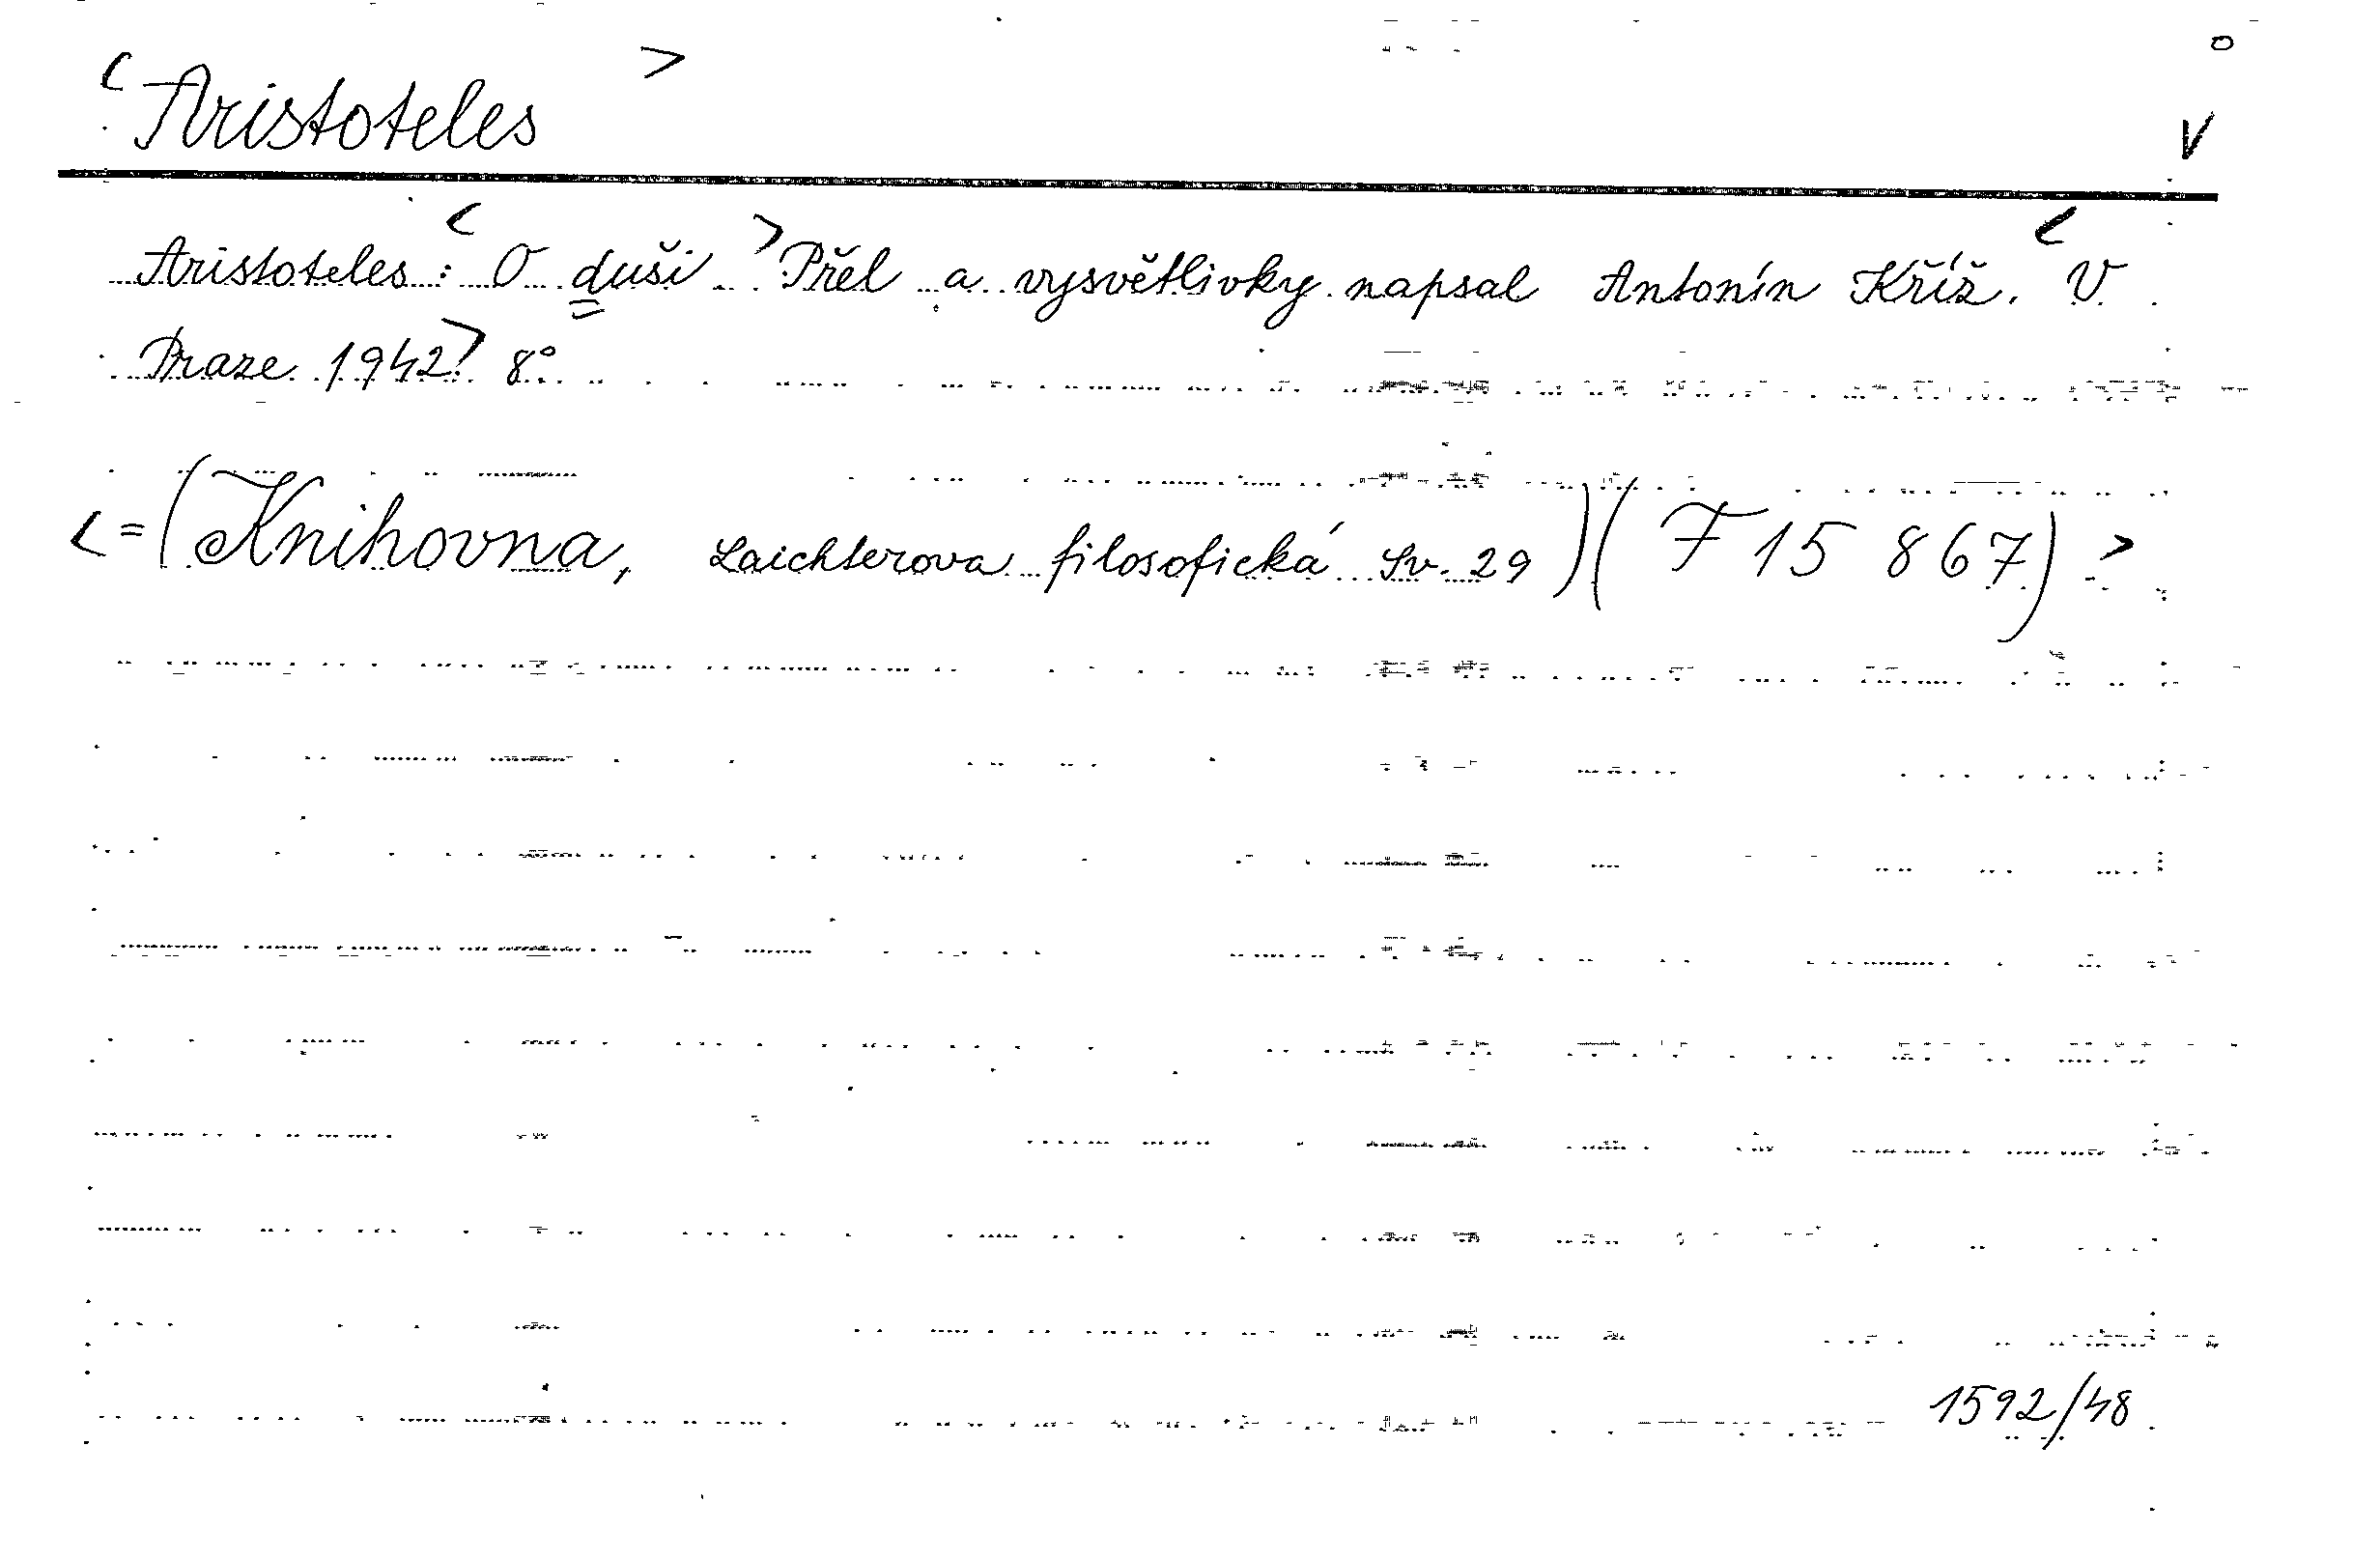 < Aristoteles >
V
Aristoteles: < O duši. > Přel a vysvětlivky napsal Antonín Kříž. < V
Praze 1942. > 8°
< = (Knihovna, Laichterova filosofická Sv. 29) (F 15 867) >
1592/48